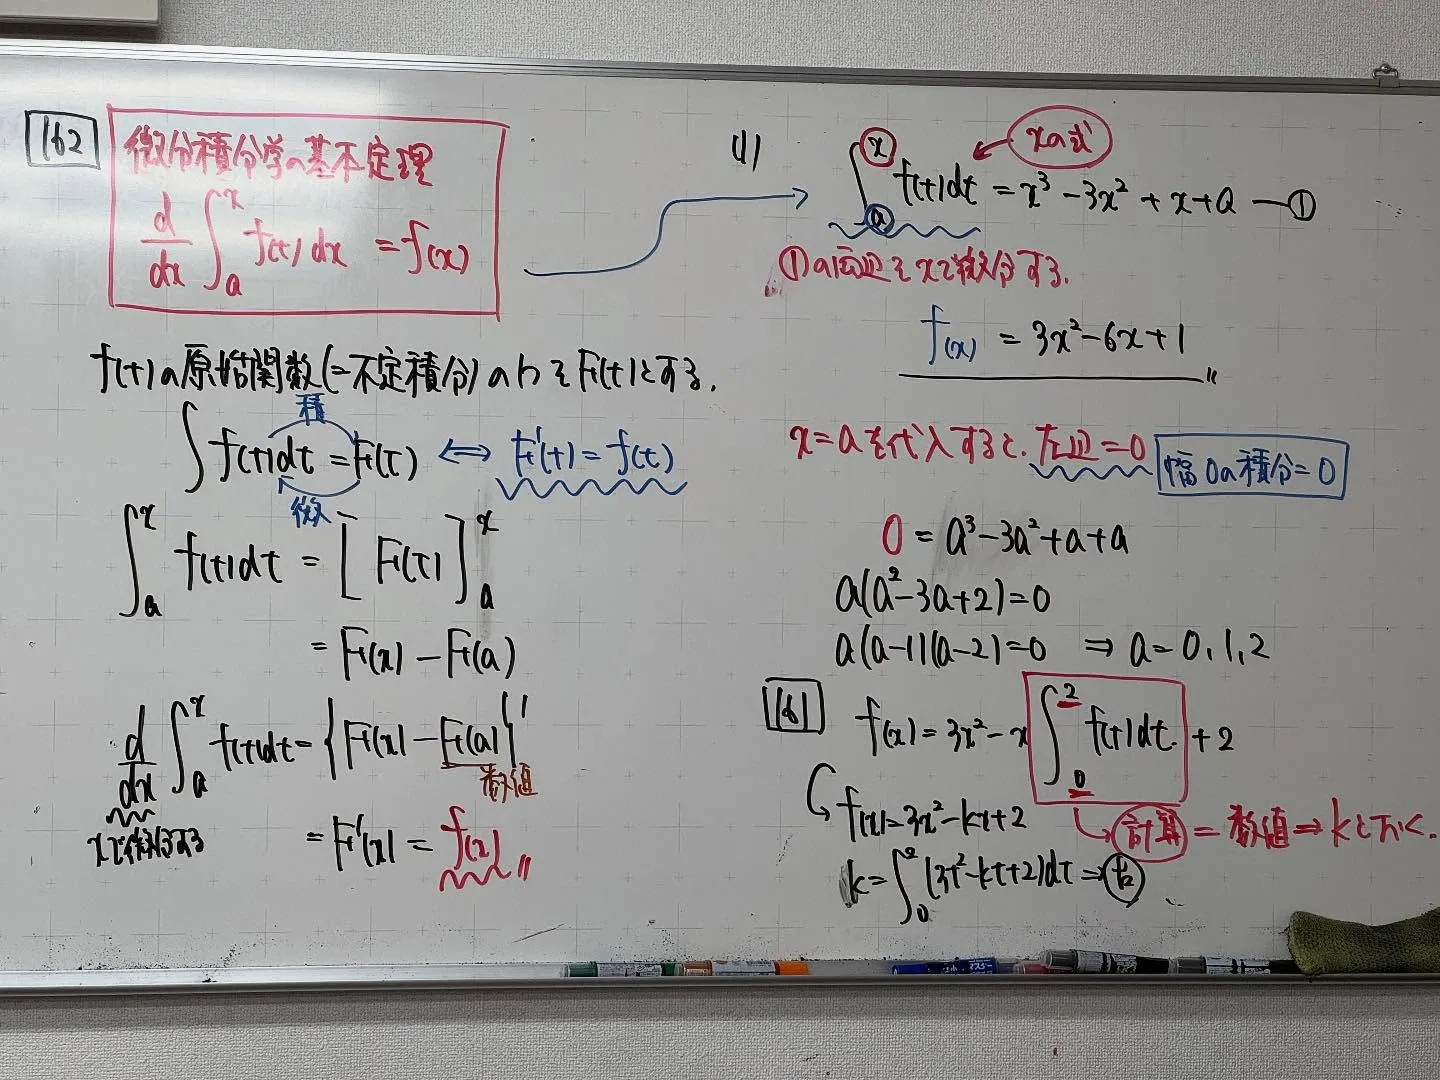 162
微分積分学の基本定理
d/dx ∫_a^x f(t)dx = f(x)
f(t)の原始関数(=不定積分)の1つをF(t)とする.
積
∫f(t)dt = F(t) ⇔ F'(t) = f(t)
微
∫_a^x f(t)dt = [F(t)]_a^x
= F(x) - F(a)
d/dx ∫_a^x f(t)dt = {F(x) - F(a)}'
数値
xで微分する
= F'(x) = f(x)〃
(1)
xの式
∫_a^x f(t)dt = x³ - 3x² + x + a ―①
①の両辺をxで微分する.
f(x) = 3x² - 6x + 1〃
x=aを代入すると、左辺=0
幅0の積分=0
0 = a³ - 3a² + a + a
a(a² - 3a + 2) = 0
a(a-1)(a-2) = 0 ⇒ a = 0, 1, 2
161
f(x) = 3x² - x ∫_0^2 f(t)dt + 2
計算 = 数値 ⇒ kとおく.
f(x) = 3x² - kx + 2
k = ∫_0^2 (3t² - kt + 2)dt =